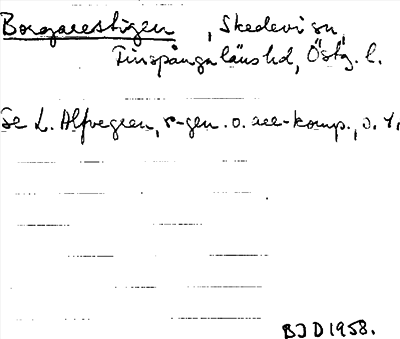 Borgarestigen, Skedevi sn,
Finspånga läns hd, Östg. l.
Se L. Alfvegren, r-gen. o. are-komp., s. 4.
BJD 1958.